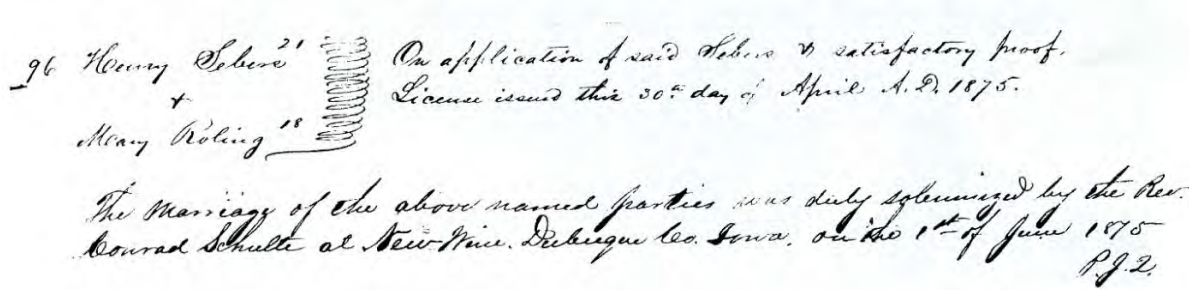 96 Henry Sebers 21
+
Mary Roling 18
On application of said Sebers & satisfactory proof.
License issued this 30th day of April A.D. 1875.
The Marriage of the above named parties was duly solemnized by the Rev.
Conrad Schulte at New Wine. Dubuque Co. Iowa. on the 1st of June 1875
P.J.Q.